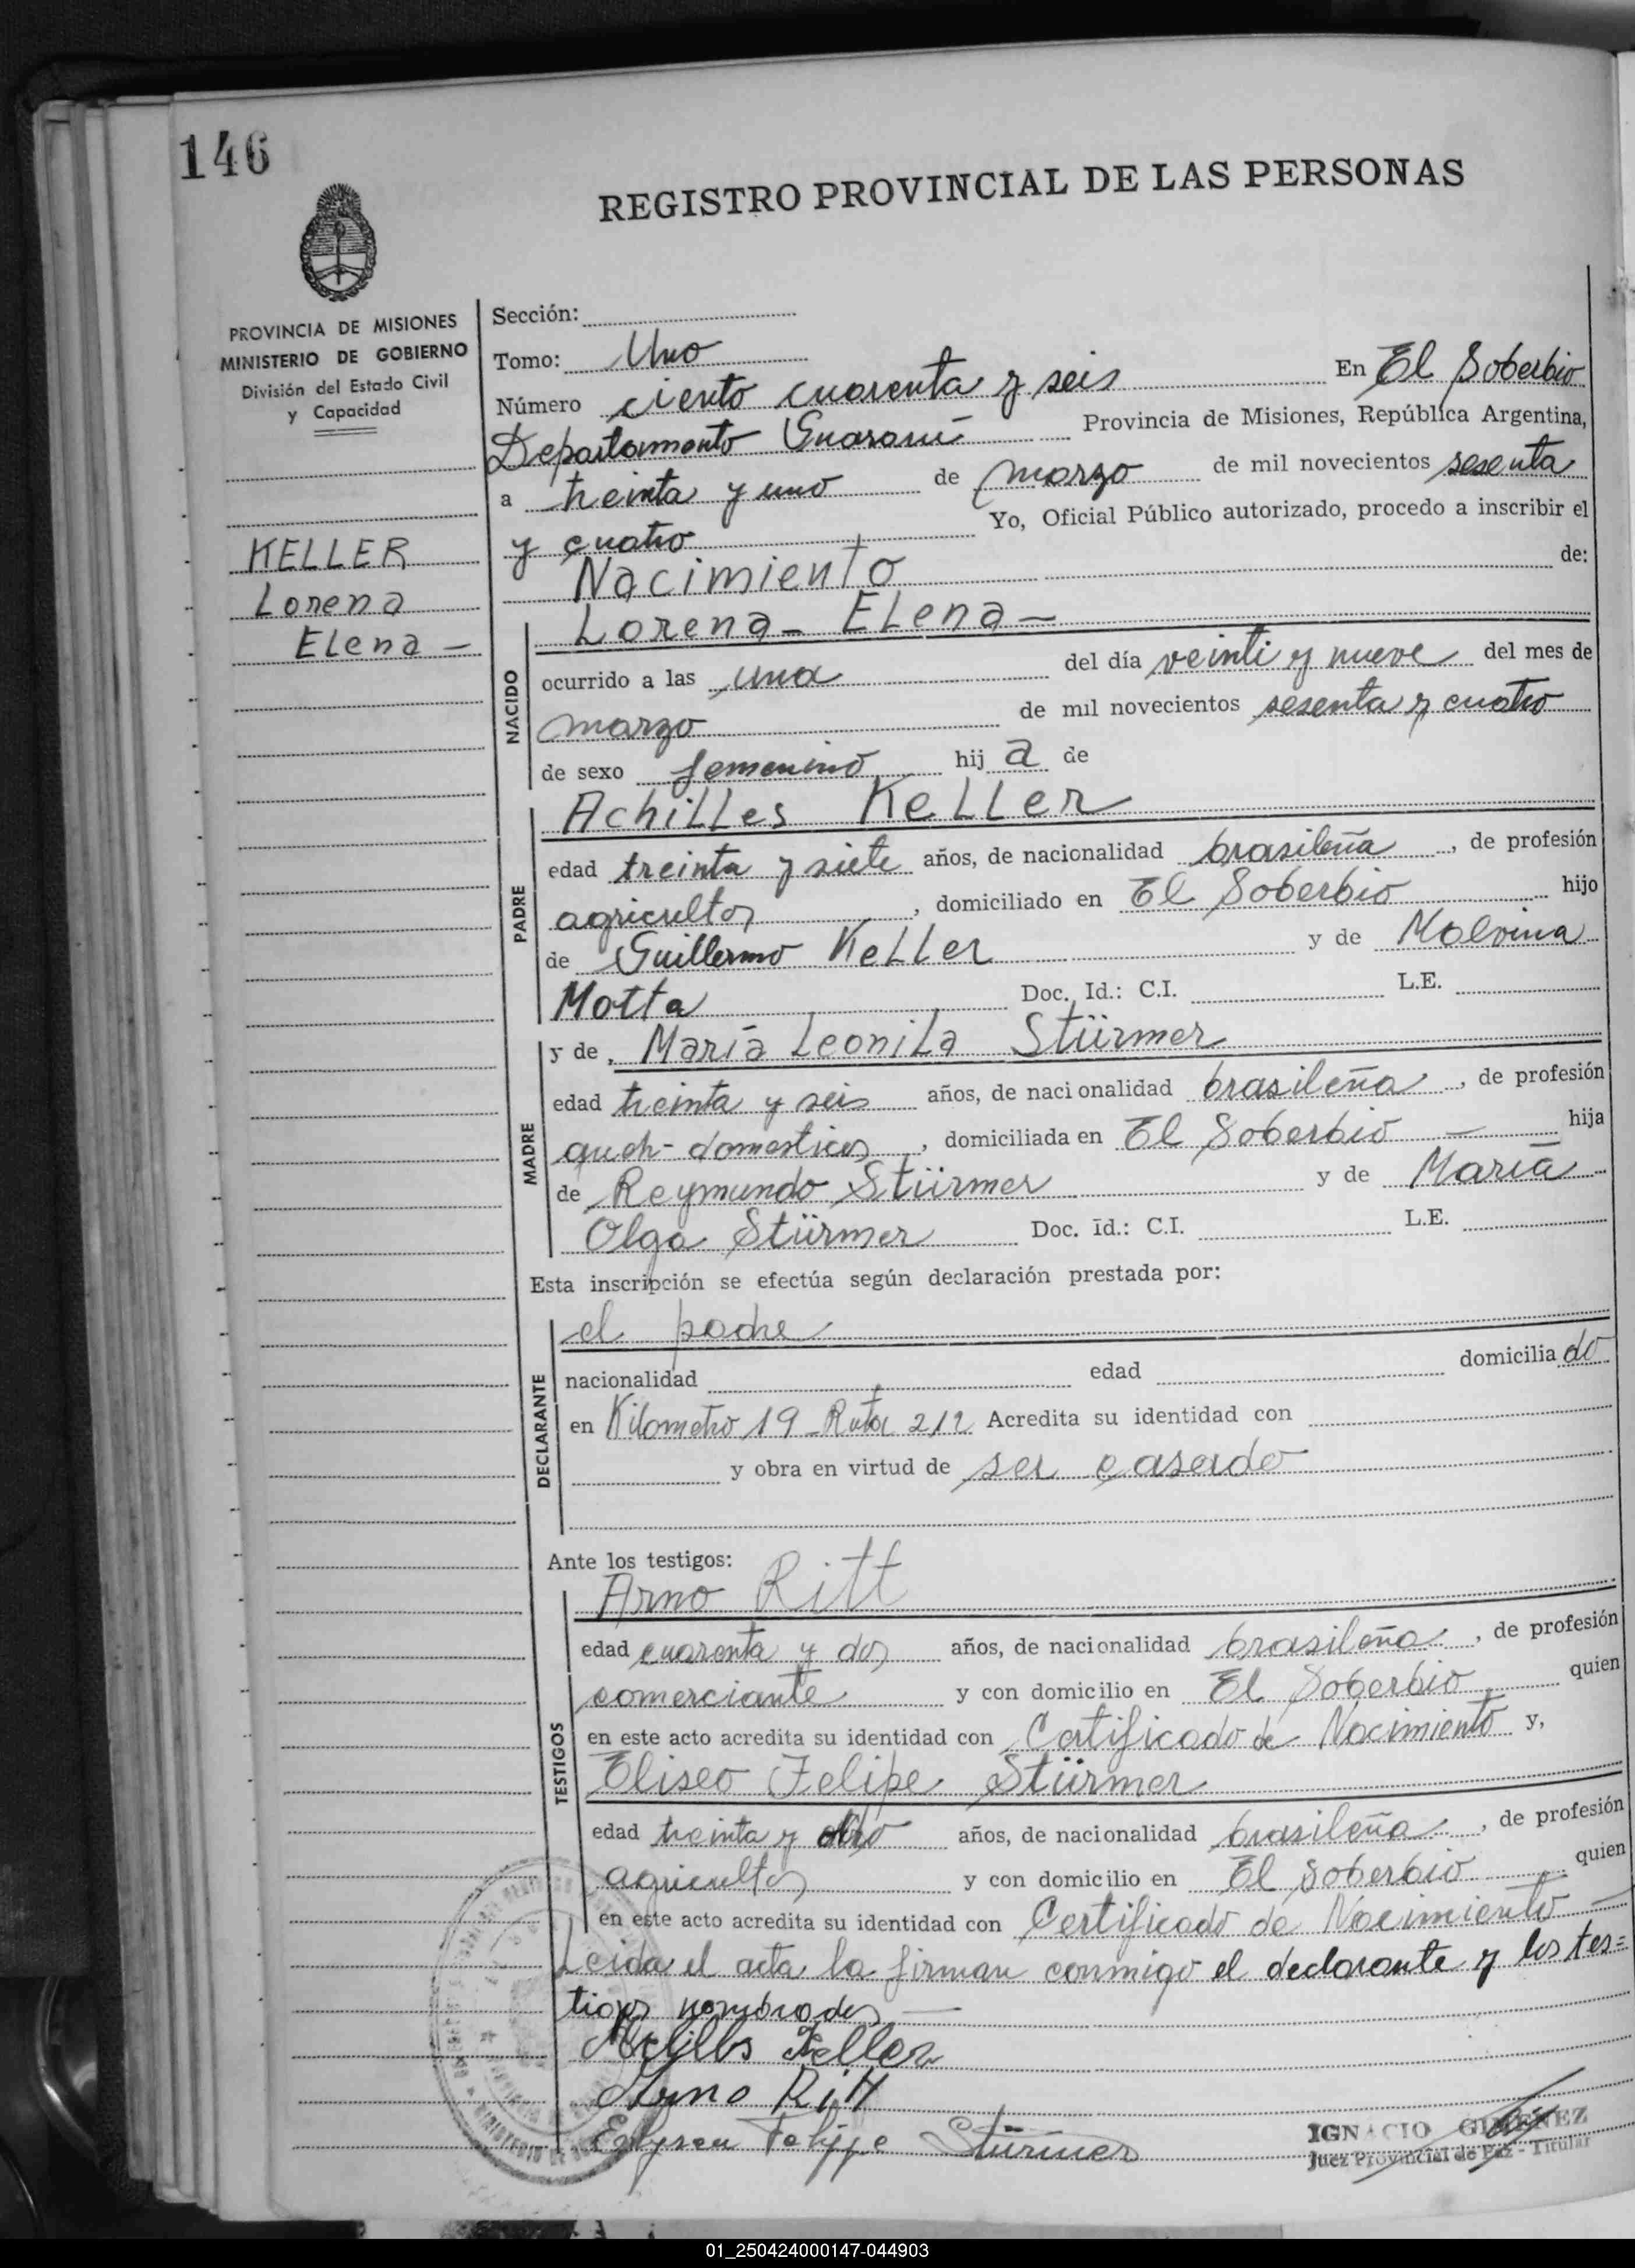 146
REGISTRO PROVINCIAL DE LAS PERSONAS
PROVINCIA DE MISIONES
MINISTERIO DE GOBIERNO
División del Estado Civil
y Capacidad
KELLER
Lorena
Elena -
Sección:
Tomo: Uno
Número ciento cuarenta y seis En El Soberbio
Departamento Guaraní Provincia de Misiones, República Argentina,
a treinta y uno de marzo de mil novecientos sesenta
y cuatro Yo, Oficial Público autorizado, procedo a inscribir el
Nacimiento de:
NACIDO
Lorena - Elena -
ocurrido a las una del día veinti y nueve del mes de
marzo de mil novecientos sesenta y cuatro
de sexo femenino hij a de
PADRE
Achilles Keller
edad treinta y siete años, de nacionalidad brasileña, de profesión
agricultor, domiciliado en El Soberbio hijo
de Guillermo Keller y de Malvina
Motta Doc. Id.: C.I. L.E.
MADRE
y de, María Leonila Stürmer
edad treinta y seis años, de nacionalidad brasileña, de profesión
queh- domesticos, domiciliada en El Soberbio - hija
de Reymundo Stürmer y de María
Olga Stürmer Doc. Id.: C.I. L.E.
Esta inscripción se efectúa según declaración prestada por:
DECLARANTE
el padre
nacionalidad edad domicilia do
en Kilometro 19 - Ruta 212 Acredita su identidad con
y obra en virtud de ser casado
Ante los testigos:
TESTIGOS
Arno Ritt
edad cuarenta y dos años, de nacionalidad brasileña, de profesión
comerciante y con domicilio en El Soberbio, quien
en este acto acredita su identidad con Certificado de Nacimiento y,
Eliseo Felipe Stürmer
edad treinta y años, de nacionalidad brasileña, de profesión
agricultor y con domicilio en El Soberbio, quien
en este acto acredita su identidad con Certificado de Nacimiento -
Leida el acta la firman conmigo el declarante y los tes=
tigos nombrados -
Keller
Arno Ritt
Felippe Stürmer
IGNACIO GIMENEZ
Juez Provincial de Paz - Titular
01_250424000147-044903